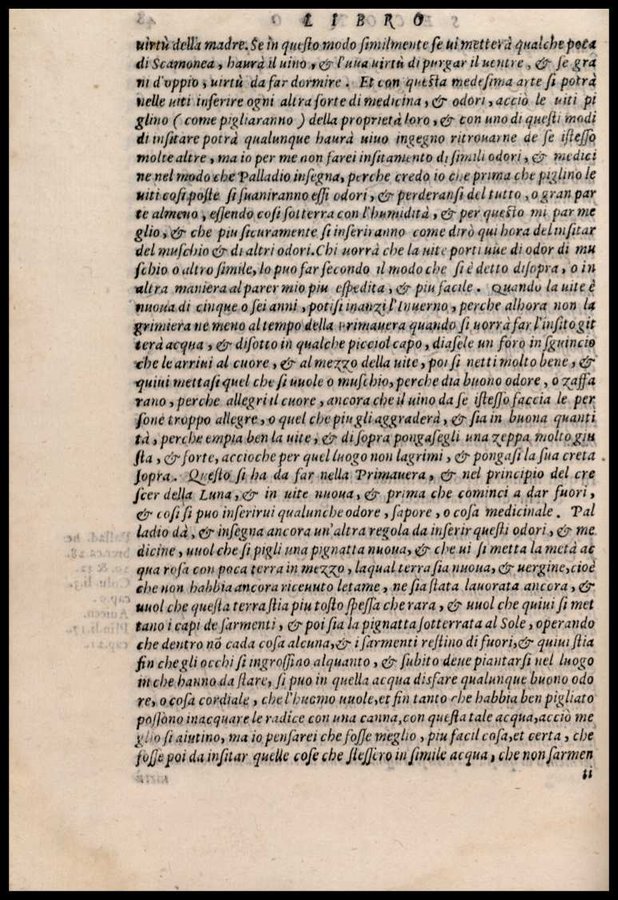 LIBRO
uirtù della madre. Se in questo modo similmente se ui metterà qualche poca
di Scamonea, haurà il uino, & l'uua uirtù di purgar il uentre, & se gra
ni d'oppio, uirtù da far dormire. Et con questa medesima arte si potrà
nelle uiti inferire ogni altra sorte di medicina, & odori, acciò le uiti pi
glino (come pigliaranno) della proprietà loro, & con uno di questi modi
di insitare potrà qualunque haurà uiuo ingegno ritrouarne de se istesso
molte altre, ma io per me non farei insitamento di simili odori, & medici
ne nel modo che Palladio insegna, perche credo io che prima che piglino le
uiti così poste si suaniranno essi odori, & perderansi del tutto, o gran par
te almeno, essendo così sotterra con l'humidità, & per questo mi par me
glio, & che piu sicuramente si inseriranno come dirò qui hora del insitar
del muschio & di altri odori. Chi uorrà che la uite porti uue di odor di mu
schio o altro simile, lo puo far secondo il modo che si è detto disopra, o in
altra maniera al parer mio piu espedita, & piu facile. Quando la uite è
nuoua di cinque o sei anni, potisi inanzi l'Inuerno, perche alhora non la
grimiera ne meno al tempo della Primauera quando si uorrà far l'insito git
terà acqua, & disotto in qualche picciol capo, diasele un foro in sguincio
che le arriui al cuore, & al mezzo della uite, poi si netti molto bene, &
quiui mettasi quel che si uuole o muschio, perche dia buono odore, o zaffa
rano, perche allegri il cuore, ancora che il uino da se istesso faccia le per
sone troppo allegre, o quel che piu gli aggraderà, & sia in buona quanti
tà, perche empia ben la uite, & di sopra pongasegli una zeppa molto giu
sta, & forte, accioche per quel luogo non lagrimi, & pongasi la sua creta
sopra. Questo si ha da far nella Primauera, & nel principio del cre
scer della Luna, & in uite nuoua, & prima che cominci a dar fuori,
& così si puo inserirui qualunche odore, sapore, o cosa medicinale. Pal
ladio dà, & insegna ancora un'altra regola da inserir questi odori, & me
dicine, uuol che si pigli una pignatta nuoua, & che ui si metta la metà ac
qua rosa con poca terra in mezzo, laqual terra sia nuoua, & uergine, cioè
che non habbia ancora riceuuto letame, ne sia stata lauorata ancora, &
uuol che questa terra stia piu tosto spessa che rara, & uuol che quiui si met
tano i capi de sarmenti, & poi sia la pignatta sotterrata al Sole, operando
che dentro nõ cada cosa alcuna, & i sarmenti restino di fuori, & quiui stia
fin che gli occhi si ingrossino alquanto, & subito deue piantarsi nel luogo
in che hanno da stare, si puo in quella acqua disfare qualunque buono odo
re, o cosa cordiale, che l'huomo uuole, et fin tanto che habbia ben pigliato
possono inacquare le radice con una canna, con questa tale acqua, acciò me
glio si aiutino, ma io pensarei che fosse meglio, piu facil cosa, et certa, che
fosse poi da insitar quelle cose che stessero in simile acqua, che non sarmen
ti